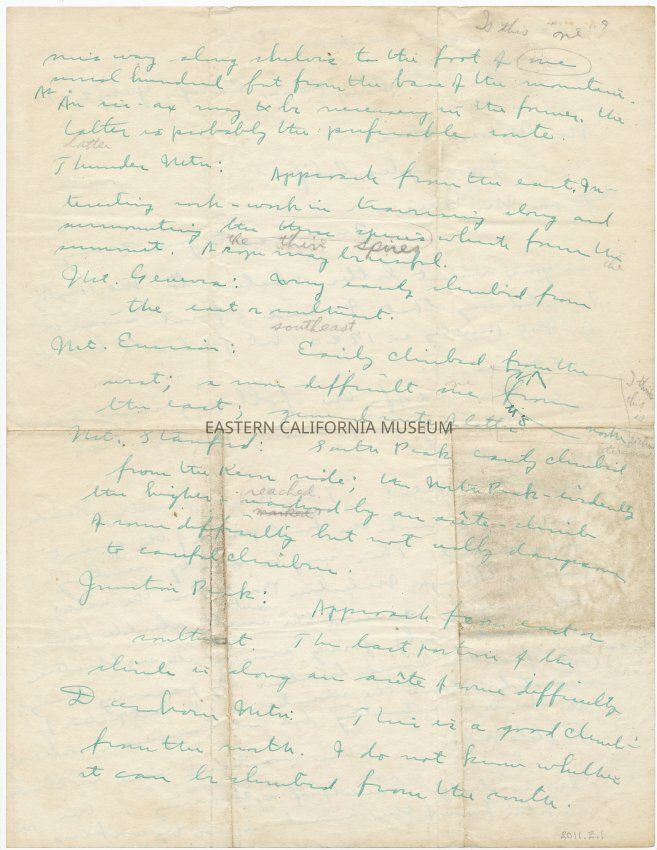 Is this "one"?
way along shelves to the foot of one
hundred feet from the base of the mountain.
An ice-ax may be necessary in the former, the
latter is probably the preferable route.
latter
Thunder Mtn: Approach from the east. In-
teresting rock-work in traversing along and
surmounting the three spires which form the
the three spires the
summit. A rope may be useful.
Mt. Geneva: Very easily climbed from
the east or southeast.
southeast
Mt. Emerson: Easily climbed from the
west; a more difficult one from
the east,
EASTERN CALIFORNIA MUSEUM
north
Mt. Stanford: South Peak easily climbed
from the Kern side; the North Peak - evidently
the higher - reached by an arête - climb
reached
of some difficulty but not really dangerous
to careful climbers.
Junction Peak: Approach from east or
southwest. The last portion of the
climb is along an arête of some difficulty
Deerhorn Mtn: This is a good climb -
from the north. I do not know whether
it can be climbed from the south.
2011.2.1